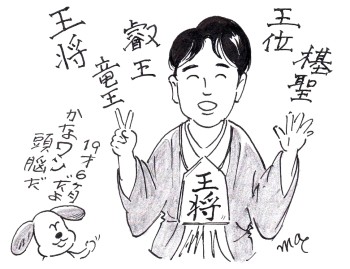 棋聖
王位
叡王
竜王
王将
王将
19才6ヶ月
かなワンだよ
頭脳だ
mac